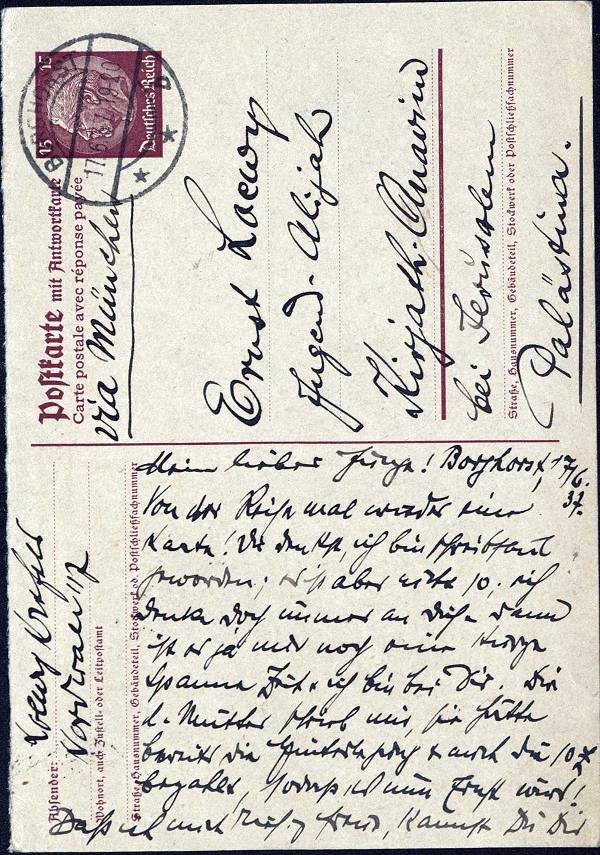 15 15
Deutsches Reich
BORGHORST
17.6.37.19-20
b
Postkarte mit Antwortkarte
Carte postale avec réponse payée
via München
Ernst Loewy
Jugend-Alijah
Kirjath-Anavim
bei Jerusalem
Straße, Hausnummer, Gebäudeteil, Stockwerk oder Postschließfachnummer
Palästina.
Absender:
Wohnort, auch Zustell- oder Leitpostamt
Straße, Hausnummer, Gebäudeteil, Stockwerk od. Postschließfachnummer
Mein lieber Junge! Borghorst, 17/6. 37.
Von der Reise mal wieder eine
Karte! Du denkst, ich bin schreibfaul
geworden; ist aber nicht so, ich
denke doch immer an Dich. Dann
ist es ja nur noch eine kurze
Spanne Zeit & ich bin bei Dir. Die
l. Mutter schrieb mir, sie hätte
bereits die & auch die 10
bezahlt, sodass es nun Ernst wird!
Dass ich mich freue, kannst Du Dir